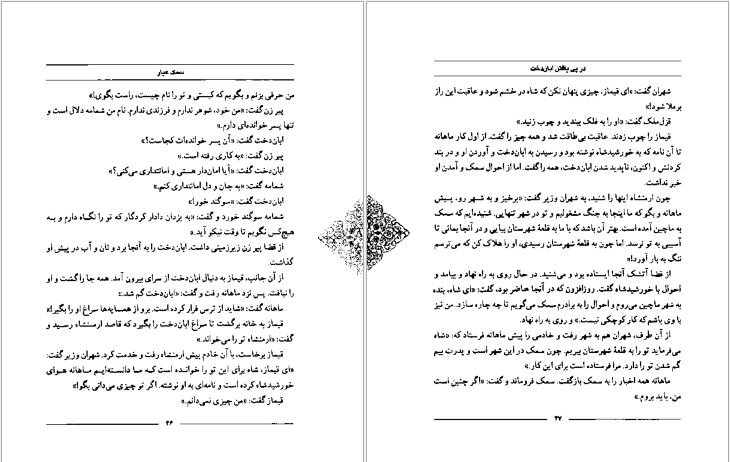 سمک عیار
من حرفی بزنم و بگویم که کیستی و تو را نام چیست، راست بگوی!»
پیر زن گفت: «من خود، شوهر ندارم و فرزندی ندارم. نام من شمامه دلال است و
تنها پسر خوانده‌ای دارم.»
ابان‌دخت گفت: «آن پسر خوانده‌ات کجاست؟»
پیر زن گفت: «به کاری رفته است.»
ابان‌دخت گفت: «آیا امان‌دار هستی و امانتداری می‌کنی؟»
شمامه گفت: «به جان و دل امانتداری کنم.»
ابان‌دخت گفت: «سوگند خور!»
شمامه سوگند خورد و گفت: «به یزدان دادار کردگار که تو را نگاه دارم و به
هیچ‌کس نگویم تا وقت نیکو آید.»
از قضا پیر زن زیرزمینی داشت. ابان‌دخت را به آنجا برد و نان و آب در پیش او
گذاشت.
از آن جانب، قیماز به دنبال ابان‌دخت از سرای بیرون آمد. همه جا را گشت و او
را نیافت. پس نزد ماهانه رفت و گفت: «ابان‌دخت گم شد.»
ماهانه گفت: «شاید از ترس فرار کرده است. برو از همسایه‌ها سراغ او را بگیر!»
قیماز به خانه برگشت تا سراغ ابان‌دخت را بگیرد که قاصد ارمنشاه رسید و
گفت: «ارمنشاه تو را می‌خواند.»
قیماز برخاست، با آن خادم پیش ارمنشاه رفت و خدمت کرد. شهران وزیر گفت:
«ای قیماز، شاه برای این تو را خوانده است که ما دانسته‌ایم ماهانه هوای
خورشیدشاه کرده است و نامه‌ای به او نوشته. اگر تو چیزی می‌دانی بگو!»
قیماز گفت: «من چیزی نمی‌دانم.»
۴۶
در پی یافتن ابان‌دخت
شهران گفت: «ای قیماز، چیزی پنهان نکن که شاه در خشم شود و عاقبت این راز
برملا شود!»
قزل‌ملک گفت: «او را به فلک ببندید و چوب زنید.»
قیماز را چوب زدند. عاقبت بی‌طاقت شد و همه چیز را گفت. از اول کار ماهانه
تا آن نامه که به خورشیدشاه نوشته بود و رسیدن به ابان‌دخت و آوردن او و در بند
کردنش و اکنون، ناپدید شدن ابان‌دخت، همه را گفت. اما از احوال سمک و آمدن او
خبر نداشت.
چون ارمنشاه اینها را شنید، به شهران وزیر گفت: «برخیز و به شهر رو، پیش
ماهانه و بگو که ما اینجا به جنگ مشغولیم و تو در شهر تنهایی. شنیده‌ایم که سمک
به ماچین آمده است. بهتر آن باشد که با ما به قلعهٔ شهرستان بیایی و در آنجا بمانی تا
آسیبی به تو نرسد. اما چون به قلعهٔ شهرستان رسیدی، او را هلاک کن که می‌ترسم
ننگ به بار آورد!»
از قضا آتشک آنجا ایستاده بود و می‌شنید. در حال روی به راه نهاد و بیامد و
احوال با خورشیدشاه گفت. روزافزون که در آنجا حاضر بود، گفت: «ای شاه، بنده
به شهر ماچین می‌روم و احوال را به برادرم سمک می‌گویم تا چه چاره سازد. من نیز
با وی باشم که کار کوچکی نیست.» و روی به راه نهاد.
از آن طرف، شهران هم به شهر رفت و خادمی را پیش ماهانه فرستاد که: «شاه
می‌فرماید تو را به قلعهٔ شهرستان ببریم. چون سمک در این شهر است و پدرت بیم
گم شدن تو را دارد. مرا فرستاده است برای این کار.»
ماهانه همه اخبار را به سمک بازگفت. سمک فروماند و گفت: «اگر چنین است
من، باید بروم.»
۴۷